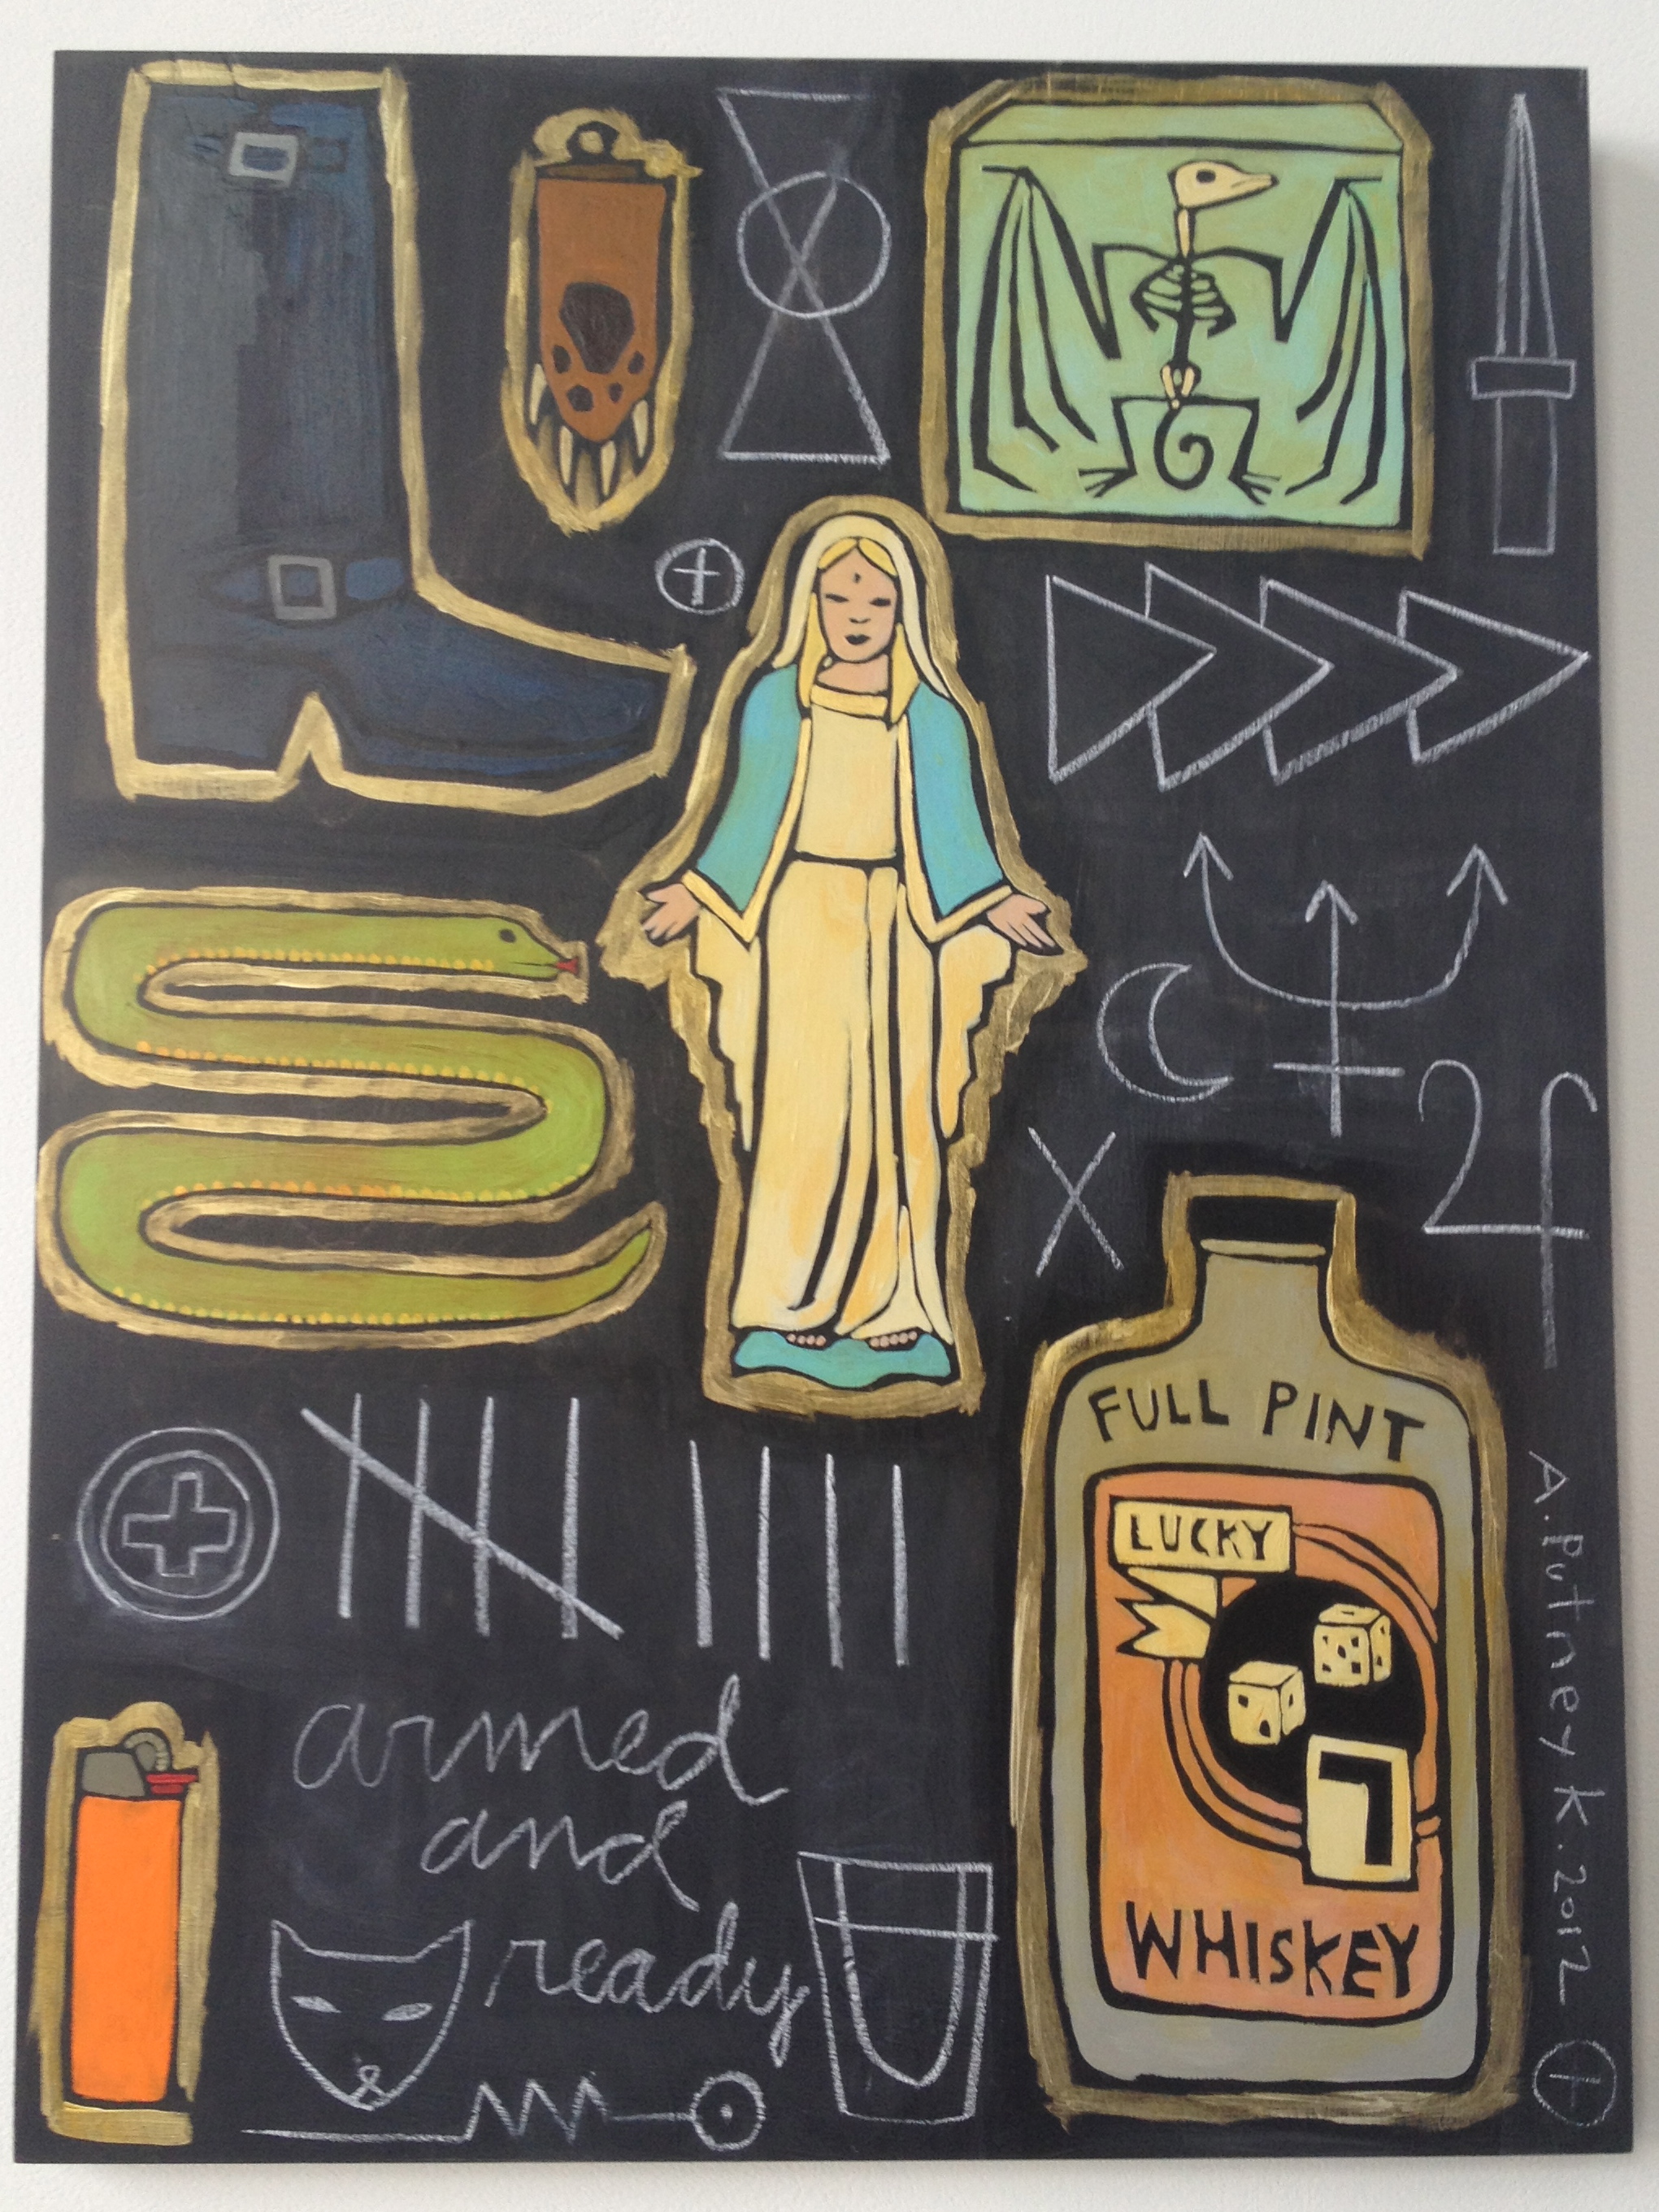 FULL PINT
LUCKY
7
WHISKEY
armed
and
ready
A. Putney K. 2012